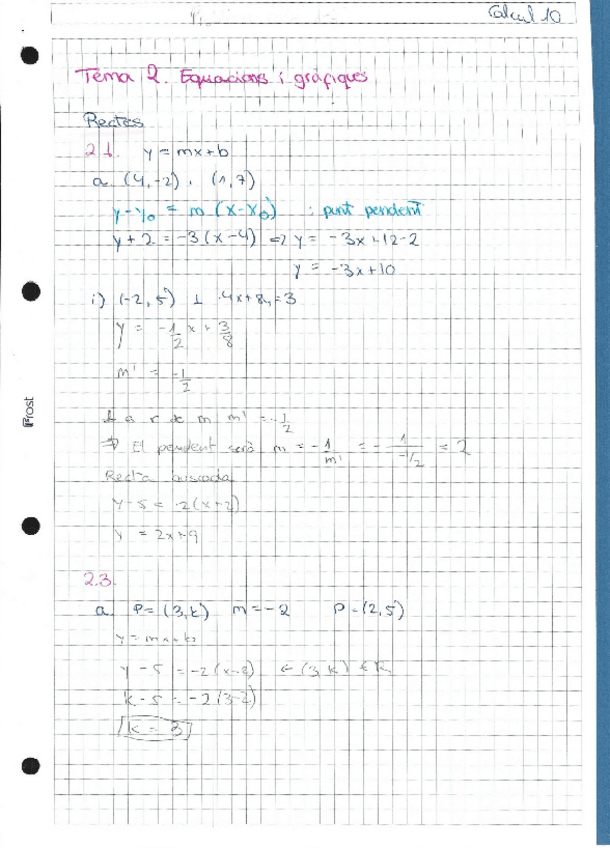 Calcul 10
Tema 2. Equacions i gràfiques
Rectes
2.1. y = mx+b
a. (4,-2) . (1,7)
y-y₀ = m (x-x₀) : punt pendent
y+2 = -3(x-4) => y = -3x+12-2
y = -3x+10
i) (-2,5) ⊥ 4x+8y=3
y = -1/2 x + 3/8
m' = -1/2
⊥ a r de m m' = -1/2
=> El pendent serà m = -1/m' = - 1/(-1/2) = 2
Recta buscada
y-5 = 2(x+2)
y = 2x+9
2.3.
a. P=(3,k) m=-2 P=(2,5)
y-5 = -2(x-2) ← (3,k)
k-5 = -2(3-2)
k = 3
Frost